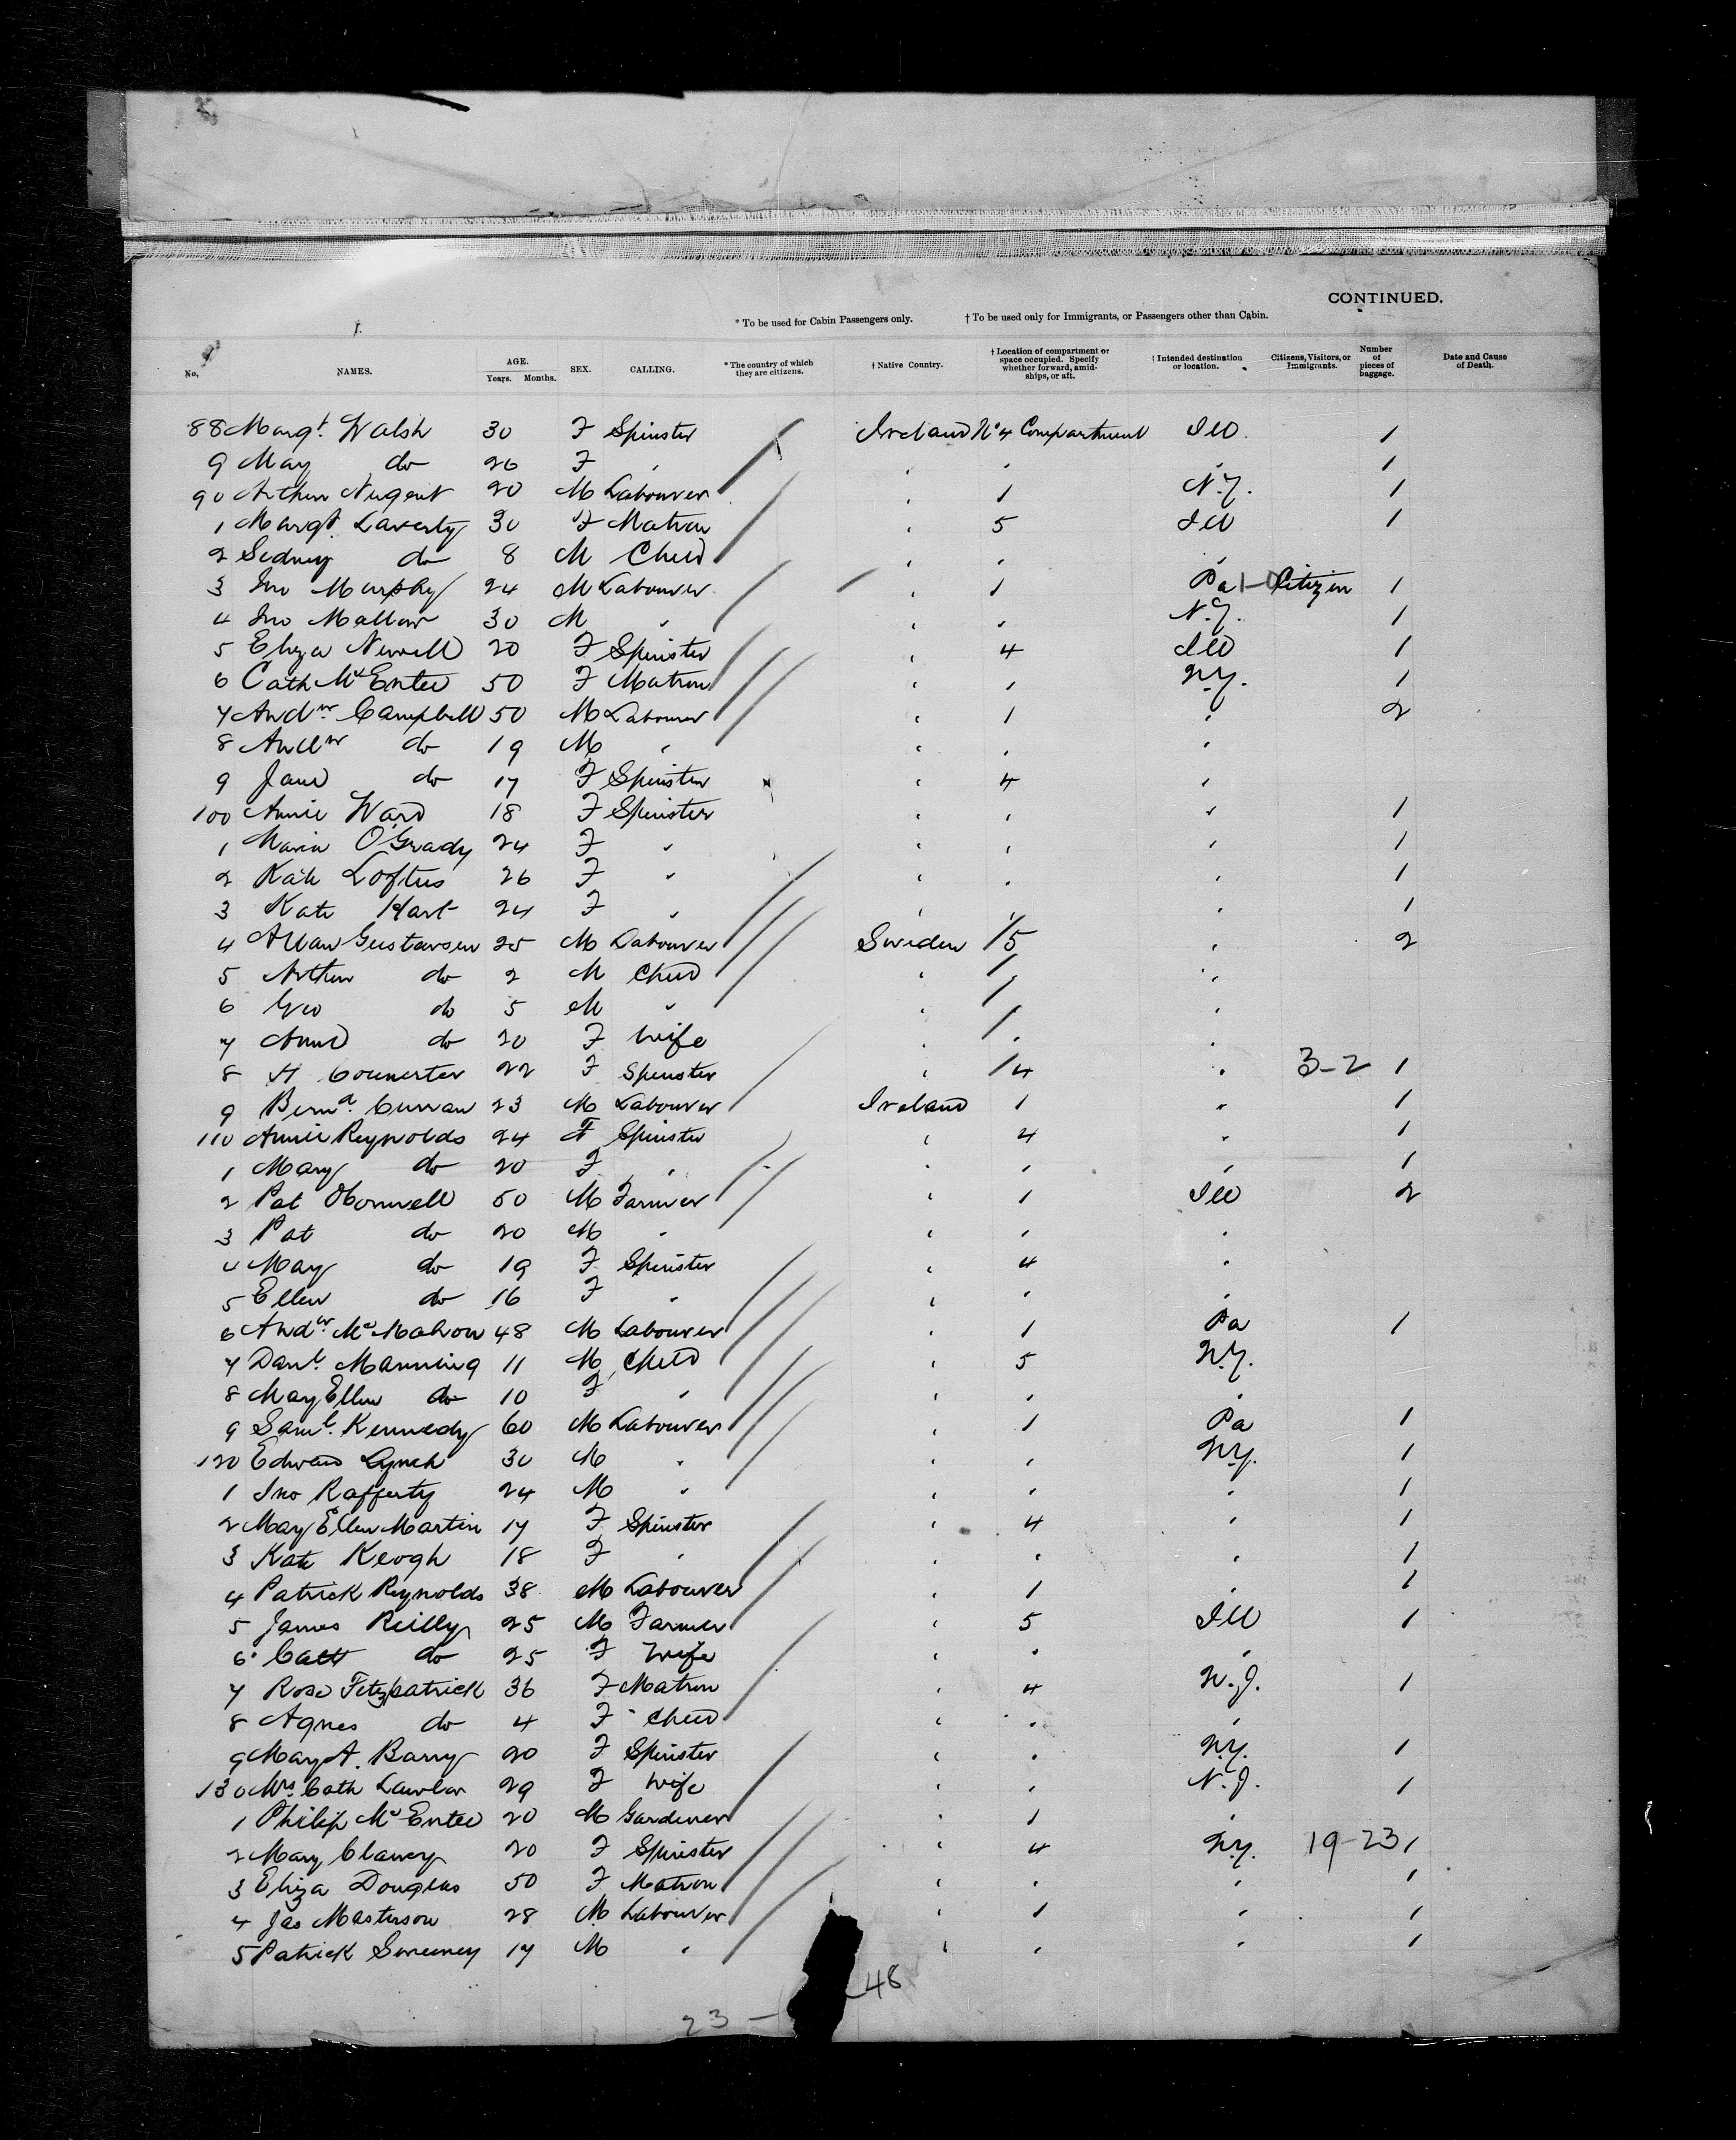 CONTINUED.
* To be used for Cabin Passengers only. † To be used only for Immigrants, or Passengers other than Cabin.
No. NAMES. AGE. Years. Months. SEX. CALLING. * The country of which they are citizens. † Native Country. † Location of compartment or space occupied. Specify whether forward, amidships, or aft. † Intended destination or location. Citizens, Visitors, or Immigrants. Number of pieces of baggage. Date and Cause of Death.
88 Margt. Walsh 30 F Spinster Ireland No 4 Compartment Ill. 1
9 May do 26 F " " " " 1
90 Arthur Nugent 20 M Labourer " 1 N.Y. 1
1 Margt Laverty 30 F Matron " 5 Ill 1
2 Sidney do 8 M Child " " "
3 Jno Murphy 24 M Labourer " 1 Pa Citizen 1
4 Jno Mallow 30 M " " " N.Y. 1
5 Eliza Newell 20 F Spinster " 4 Ill 1
6 Cath McEntee 50 F Matron " " N.Y. 1
7 Andw Campbell 50 M Labourer " 1 " 2
8 Andw do 19 M " " " "
9 Jane do 17 F Spinster " 4 "
100 Annie Ward 18 F Spinster " " " 1
1 Maria O'Grady 24 F " " " " 1
2 Kate Loftus 26 F " " " " 1
3 Kate Hart 24 F " " " " 1
4 Allan Gustavsen 25 M Labourer Sweden 5 " 2
5 Arthur do 2 M Child " " "
6 Geo do 5 M " " " "
7 Anna do 20 F Wife " " "
8 22 F Spinster " 4 " 3-2 1
9 Bernd. Curran 23 M Labourer Ireland 1 " 1
110 Annie Reynolds 24 F Spinster " 4 " 1
1 Mary do 20 F " " " " 1
2 Pat OConnell 50 M Farmer " 1 Ill 2
3 Pat do 20 M " " " "
4 May do 19 F Spinster " 4 "
5 Ellen do 16 F " " " "
6 Andw McMahon 48 M Labourer " 1 Pa 1
7 Danl. Manning 11 M Child " 5 N.Y.
8 May Ellen do 10 F " " " "
9 Saml. Kennedy 60 M Labourer " 1 Pa 1
120 Edward Lynch 30 M " " " N.Y. 1
1 Jno Rafferty 24 M " " " " 1
2 May Ellen Martin 17 F Spinster " 4 " 1
3 Kate Keogh 18 F " " " " 1
4 Patrick Reynolds 38 M Labourer " 1 " 1
5 James Reilly 25 M Farmer " 5 Ill 1
6 Cath do 25 F Wife " " "
7 Rose Fitzpatrick 36 F Matron " 4 N.J. 1
8 Agnes do 4 F Child " " "
9 May A. Barry 20 F Spinster " " N.Y. 1
130 Mrs Cath Lawlor 29 F Wife " " N.J. 1
1 Philip McEntee 20 M Gardener " 1 "
2 Mary Clancy 20 F Spinster " 4 N.Y. 19-23 1
3 Eliza Douglas 50 F Matron " " " 1
4 Jas Masterson 28 M Labourer " 1 " 1
5 Patrick Sweeney 17 M " " " " 1
48
23 -